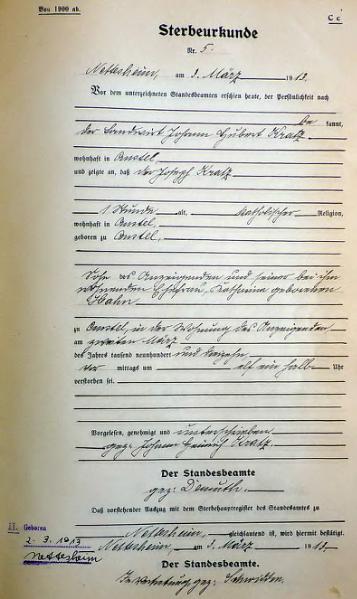 Von 1900 ab.
C c
Sterbeurkunde
Nr. 5.
Nettersheim, am 3. März 1913.
Vor dem unterzeichneten Standesbeamten erschien heute, der Persönlichkeit nach
be kannt,
der Landwirt Johann Hubert Kratz
wohnhaft in
und zeigte an, daß der Joseph Kratz
1 Stunde alt, katholischer Religion,
wohnhaft in
geboren zu
Sohn des Anzeigenden und seiner bei ihm
wohnenden Ehefrau, Katharina geborenen
zu in der Wohnung des Anzeigenden
am zweiten März
des Jahres tausend neunhundert und dreizehn
vor mittags um elf ein halb Uhr
verstorben sei.
Vorgelesen, genehmigt und unterschrieben
gez: Johann Kratz.
Der Standesbeamte
gez: Demuth.
Daß vorstehender Auszug mit dem Sterbehauptregister des Standesamts zu
Nettersheim, gleichlautend ist, wird hiermit bestätigt.
Nettersheim, am 3. März 1913.
Der Standesbeamte.
In Vertretung gez:
II. Geboren
2. 3. 1913
Nettersheim